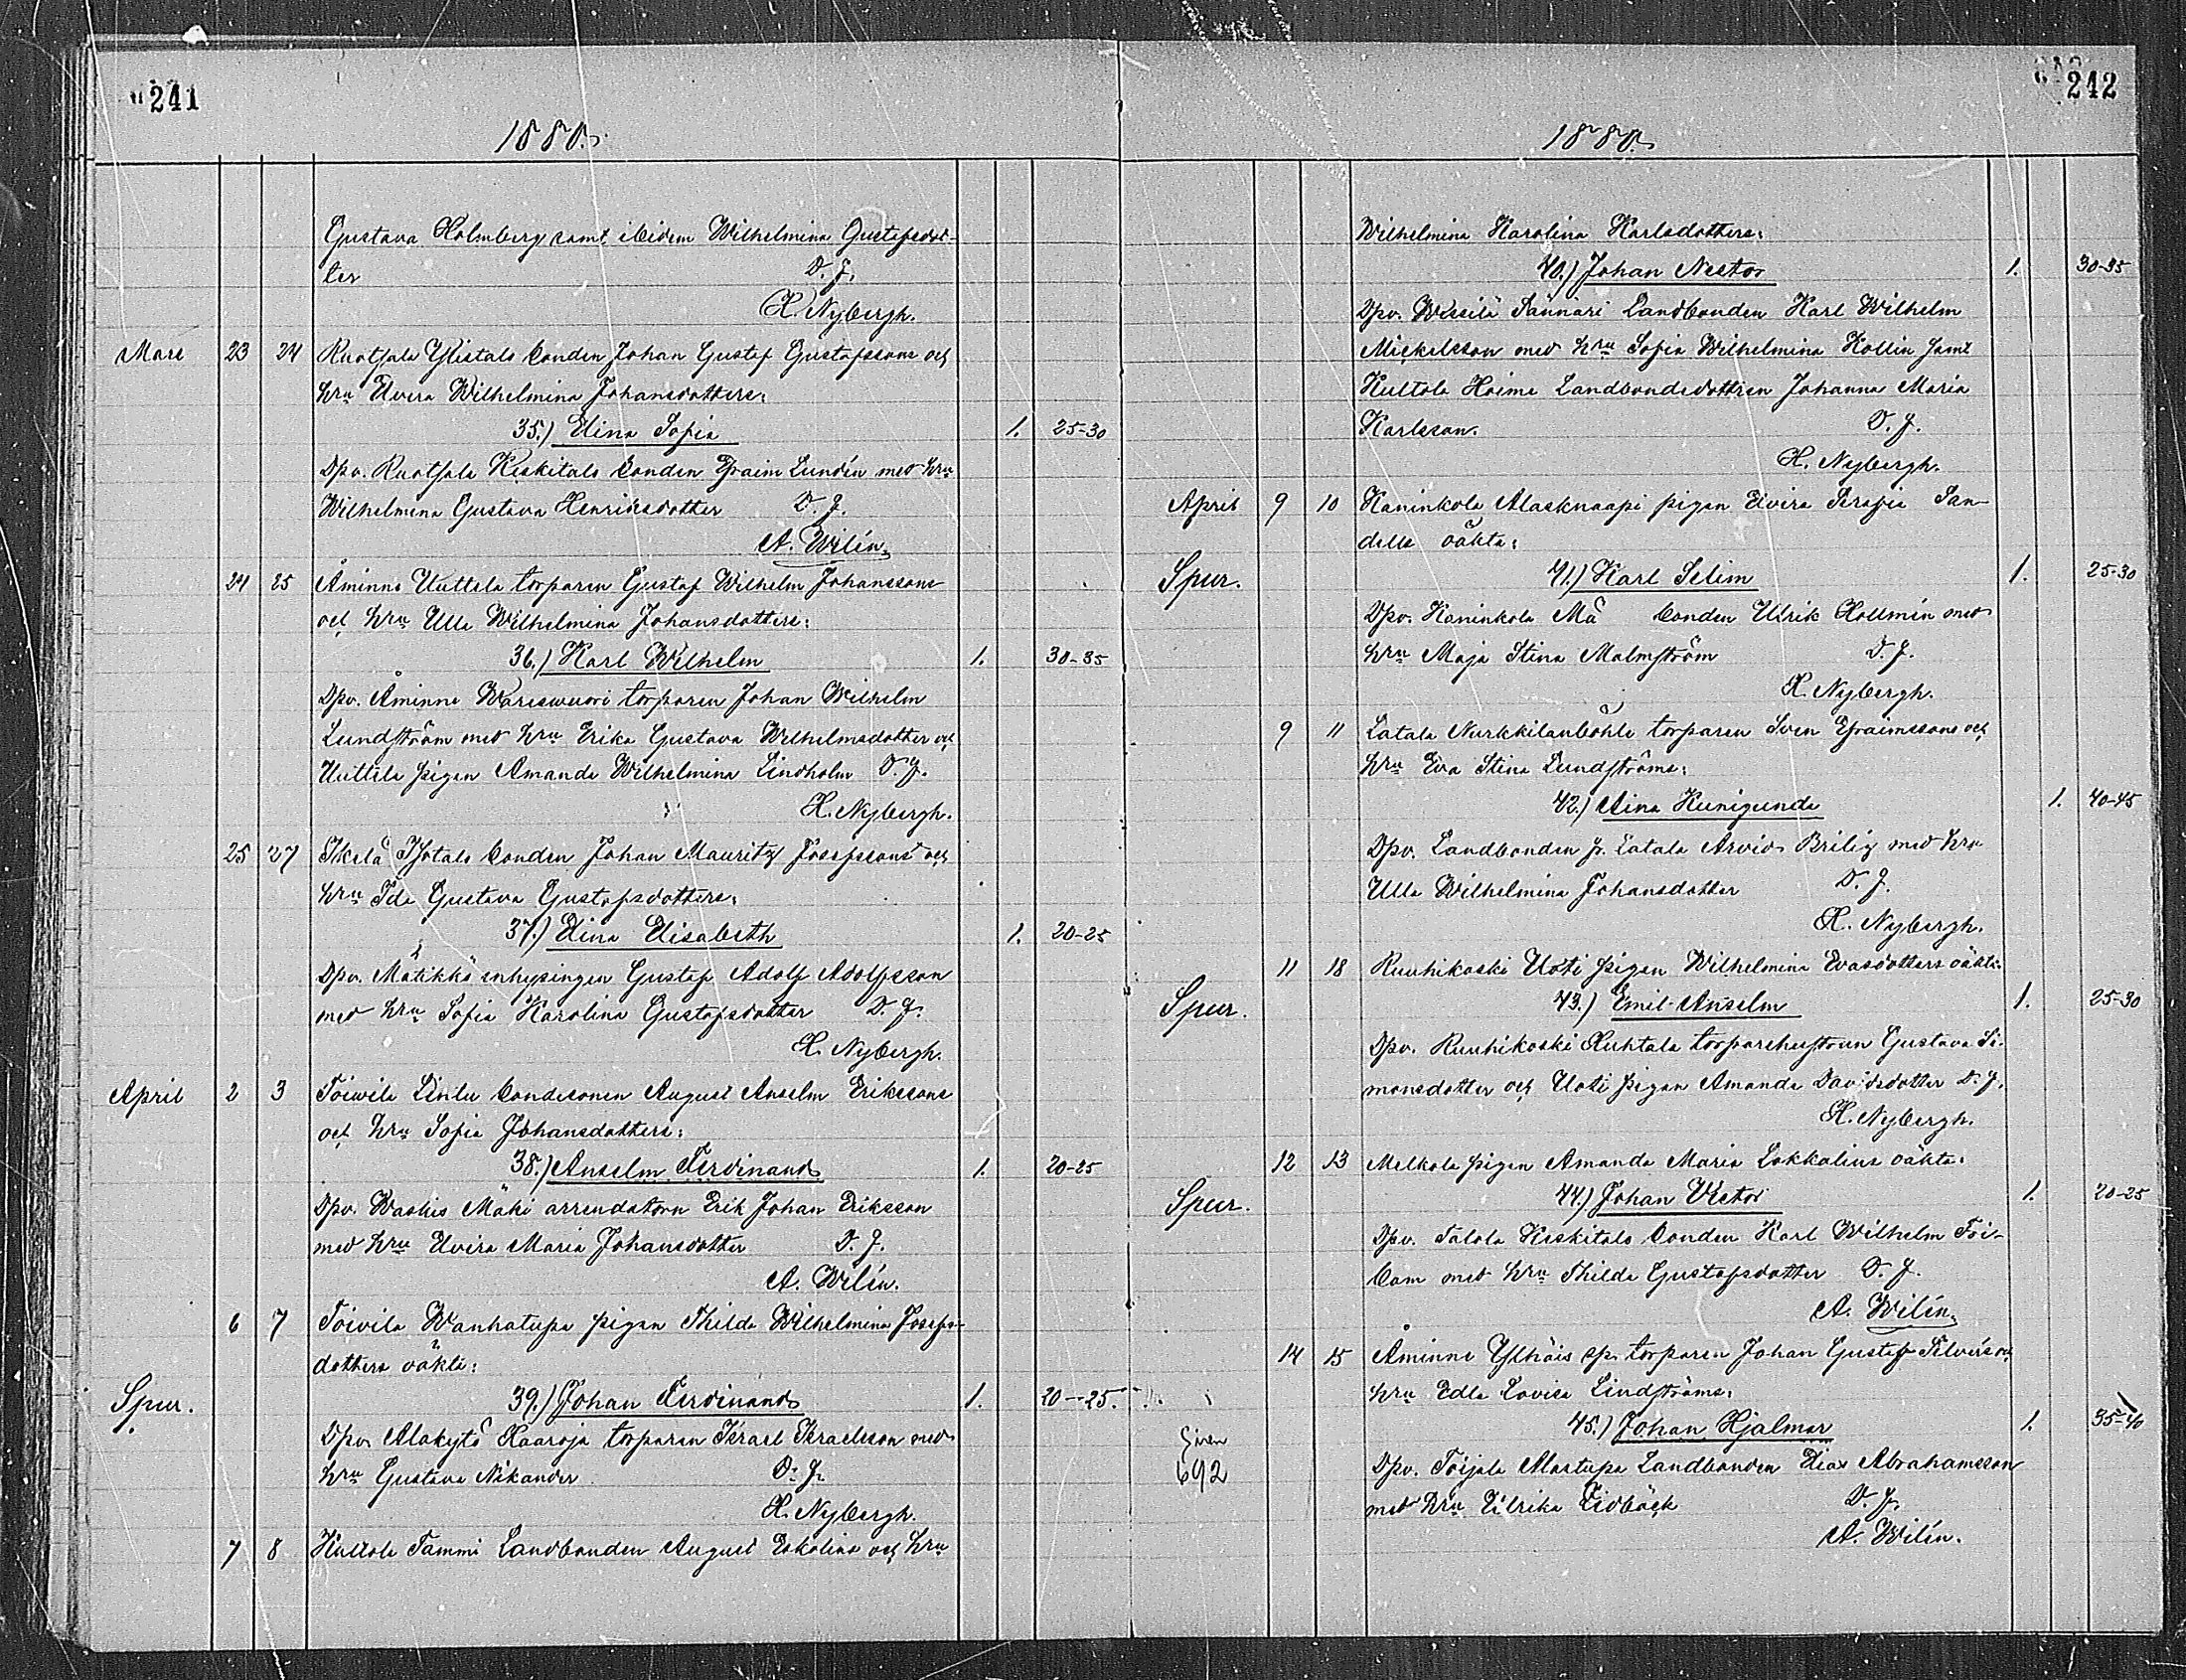 241
1880.
Gustava Holmberg samt ibidem Wilhelmina Gustafsdot-
ter D. J.
H. Nybergh.
Mars 23 24 Ruotsala Ylistalo bonden Johan Gustaf Gustafssons och
hru Elvira Wilhelmina Johansdotters:
35.) Elina Sofia 1. 25-30
Dpv. Ruotsala Keskitalo bonden Efraim Lundén med hru
Wilhelmina Gustava Henriksdotter D. J.
A. Wilén.
24 25 Åminne Uuttala torparen Gustaf Wilhelm Johanssons
och hru Ulla Wilhelmina Johansdotters:
36.) Karl Wilhelm 1. 30-35
Dpv. Åminne Wareswuori torparen Johan Wilhelm
Lundström med hru Erika Gustava Wilhelmsdotter och
Uuttala pigan Amanda Wilhelmina Lindholm D. J.
H. Nybergh.
25 27 Isotalo bonden Johan Mauritz Josefssons och
hru Ida Gustava Gustafsdotters:
37.) Elina Elisabeth 1. 20-25
Dpv. Mätikkö inhysingen Gustaf Adolf Adolfsson
med hru Sofia Karolina Gustafsdotter D. J.
H. Nybergh.
April 2 3 Toivila bondesonen August Anselm Erikssons
och hru Sofia Johansdotters:
38.) Anselm Ferdinand 1. 20-25
Dpv. Mäki arrendatorn Erik Johan Eriksson
med hru Elvira Maria Johansdotter D. J.
A. Wilén.
6 7 Toivila Wanhatupa pigan Thilda Wilhelmina Josefs-
dotters oäkta:
Spur. 39.) Johan Ferdinand 1. 20-25.
Dpv. Alakytö Haaroja torparen Israel Israelsson med
hru Gustava Nikander D. J.
H. Nybergh.
7 8 Huttola Tammi Landbonden August Eskolins och hru
242
1880.
Wilhelmina Karolina Karlsdotters:
40.) Johan Nestor 1. 30-35
Dpv. Landbonden Karl Wilhelm
Mickelsson med hru Sofia Wilhelmina Kollin samt
Huttola Heimo Landbondedottren Johanna Maria
Karlsson. D. J.
H. Nybergh.
April 9 10 Kaninkola Alasknaapi pigan Elvira Serafia San-
dells oäkta:
Spur. 41.) Karl Selim 1. 25-30
Dpv. Kaninkola bonden Ulrik Hollmén med
hru Maja Stina Malmström D. J.
H. Nybergh.
9 11 Latala Nurkkilanböhle torparen Sven Efraimssons och
hru Eva Stina Lundströms:
42.) Aina Kunigunda 1. 40-45
Dpv. Landbonden fr. Latala Arvid Brilig med hru
Ulla Wilhelmina Johansdotter D. J.
H. Nybergh.
11 18 Ruuhikoski Uoti pigan Wilhelmina Evasdotters oäkta:
Spur. 43.) Emil Anselm 1. 25-30
Dpv. Ruuhikoski Huhtala torparehustrun Gustava Si-
monsdotter och Uoti pigan Amanda Davidsdotter D. J.
H. Nybergh.
12 13 Melkola pigan Amanda Maria Lokkalins oäkta:
Spur. 44.) Johan Victor 1. 20-25
Dpv. Talola Keskitalo bonden Karl Wilhelm Toi-
bom med hru Thilda Gustafsdotter D. J.
A. Wilén.
14 15 Åminne torparen Johan Gustaf Silvéns och
hru Edla Lovisa Lindströms:
45.) Johan Hjalmar 1. 35-40
Given
692
Dpv. Toijala Alastupa Landbonden Elias Abrahamsson
med hru Ulrika Lidbäck D. J.
A. Wilén.